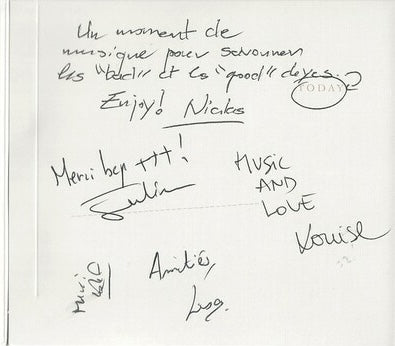 Un moment de
musique pour savourer
les "bad" et les "good" days.?
TODAY
Enjoy! Nicolas
Merci bcp +++!
Julien
MUSIC
AND
LOVE
Louise
Merci
Amitiés,